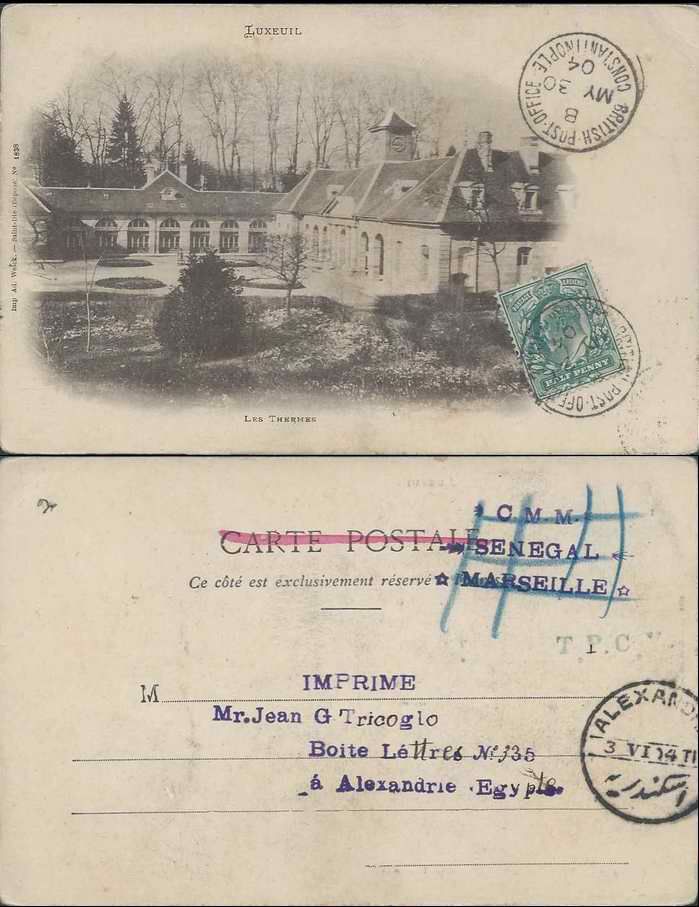 LUXEUIL
BRITISH·POST·OFFICE
CONSTANTINOPLE
B
MY 30
04
Imp Ad. Weick. — Saint-Dié (Déposé. No 1838
POSTAGE REVENUE
HALF PENNY
POST·OFF
LES THERMES
CARTE POSTALE
Ce côté est exclusivement réservé
C. M. M.
SENEGAL
☆ MARSEILLE ☆
T.P.C.
M
IMPRIME
Mr. Jean G Tricoglo
Boite Léttres No 335
á Alexandrie Egypte
ALEXAND
3 VI 04 T
اسكندرية